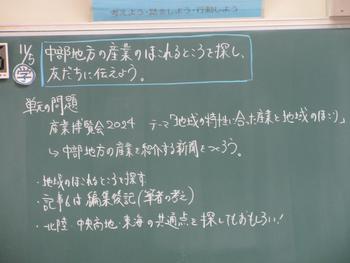 考えよう・話き合しよう・行動しよう
11/5
学
中部地方の産業のほこれるところを探し、
友だちに伝えよう。
単元の問題
産業博覧会2024 テーマ「地域の特性に合った産業と地域のほこり」
↳中部地方の産業を紹介する新聞をつくろう。
・地域のほこれるところを探す
・記事6は編集後記(筆者の考え)
・北陸、中央高地、東海の共通点を探してもおもしろい!